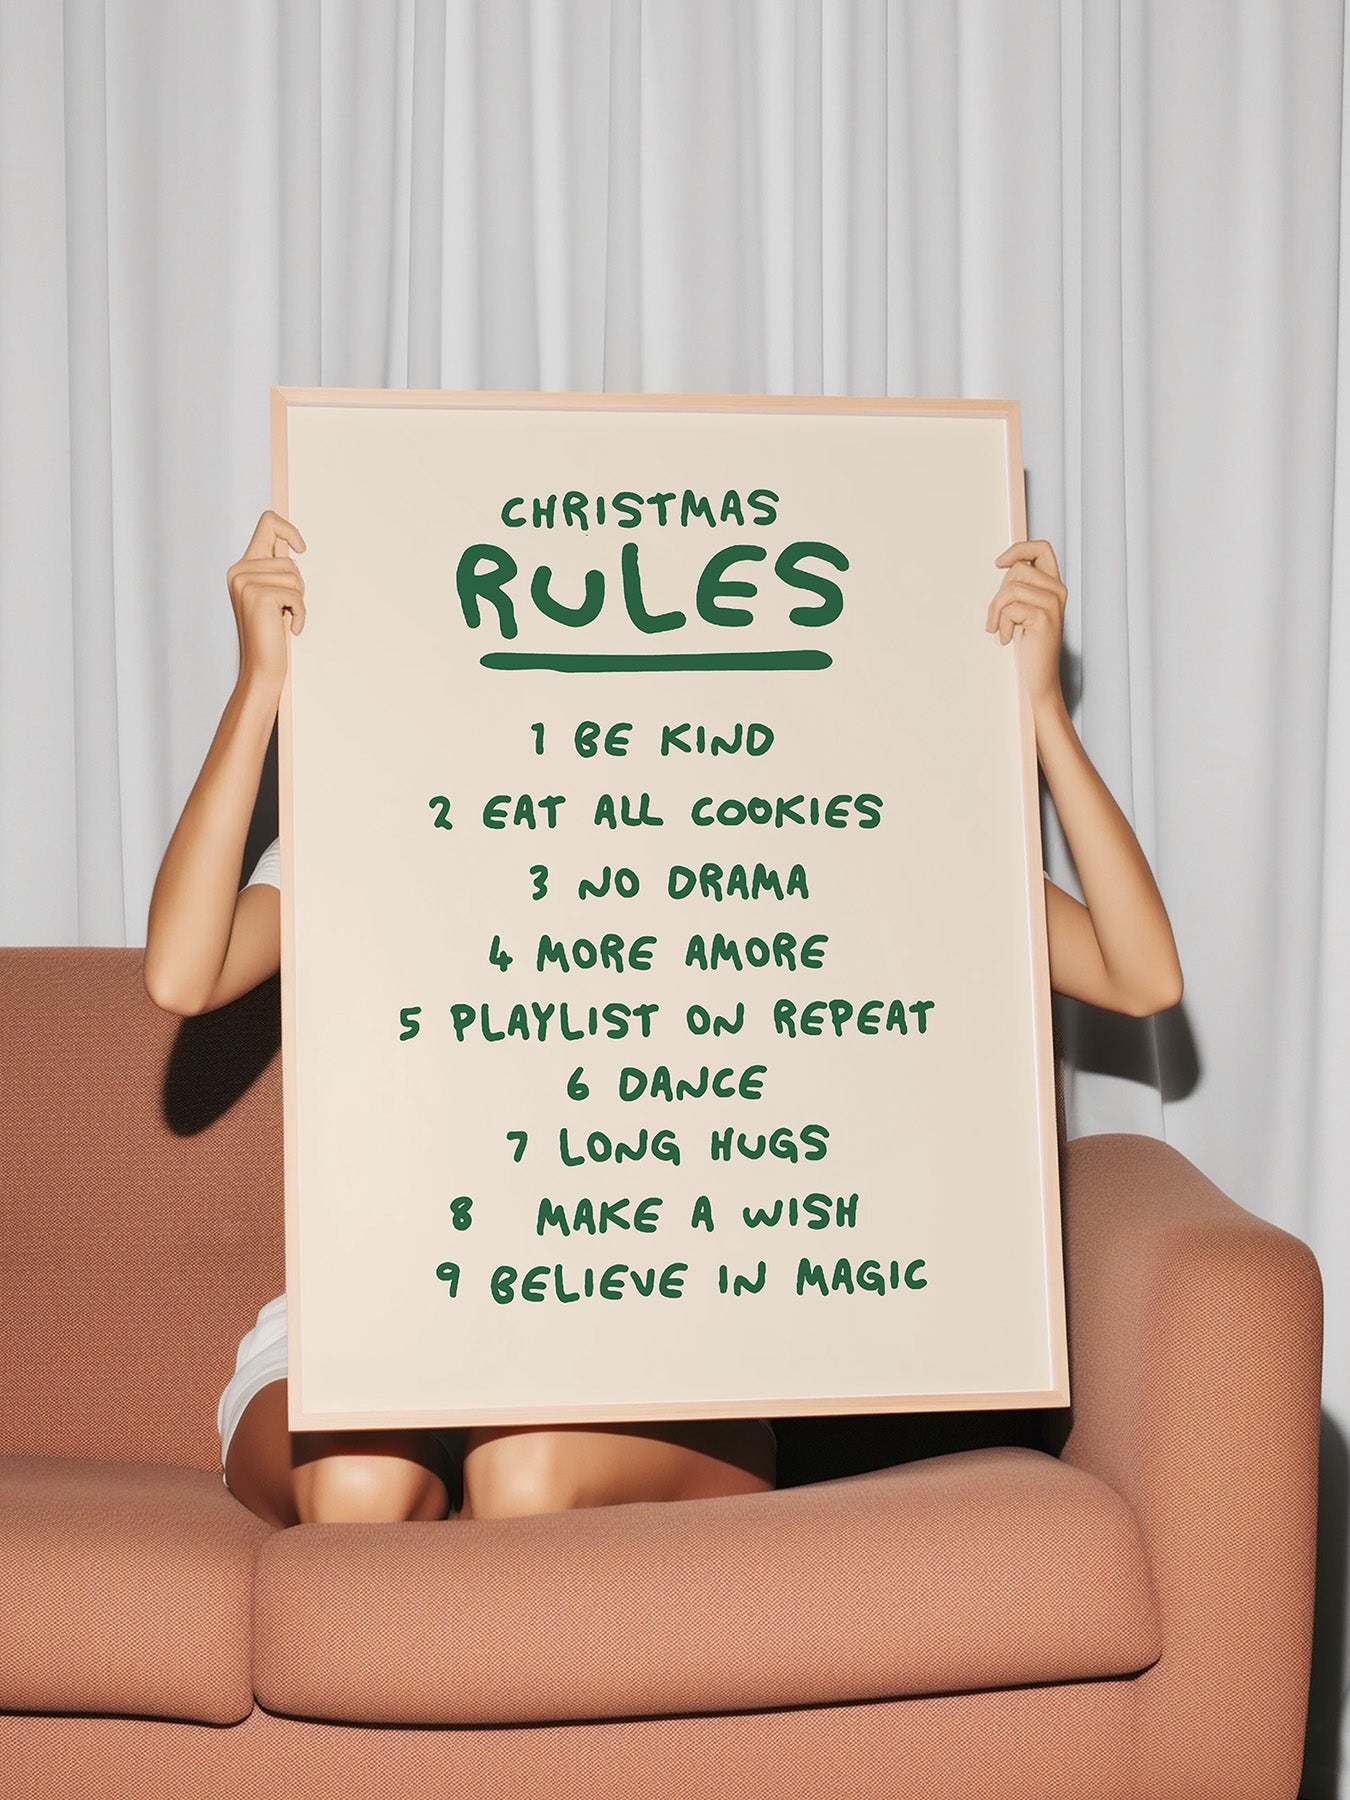 CHRISTMAS
RULES
1 BE KIND
2 EAT ALL COOKIES
3 NO DRAMA
4 MORE AMORE
5 PLAYLIST ON REPEAT
6 DANCE
7 LONG HUGS
8 MAKE A WISH
9 BELIEVE IN MAGIC